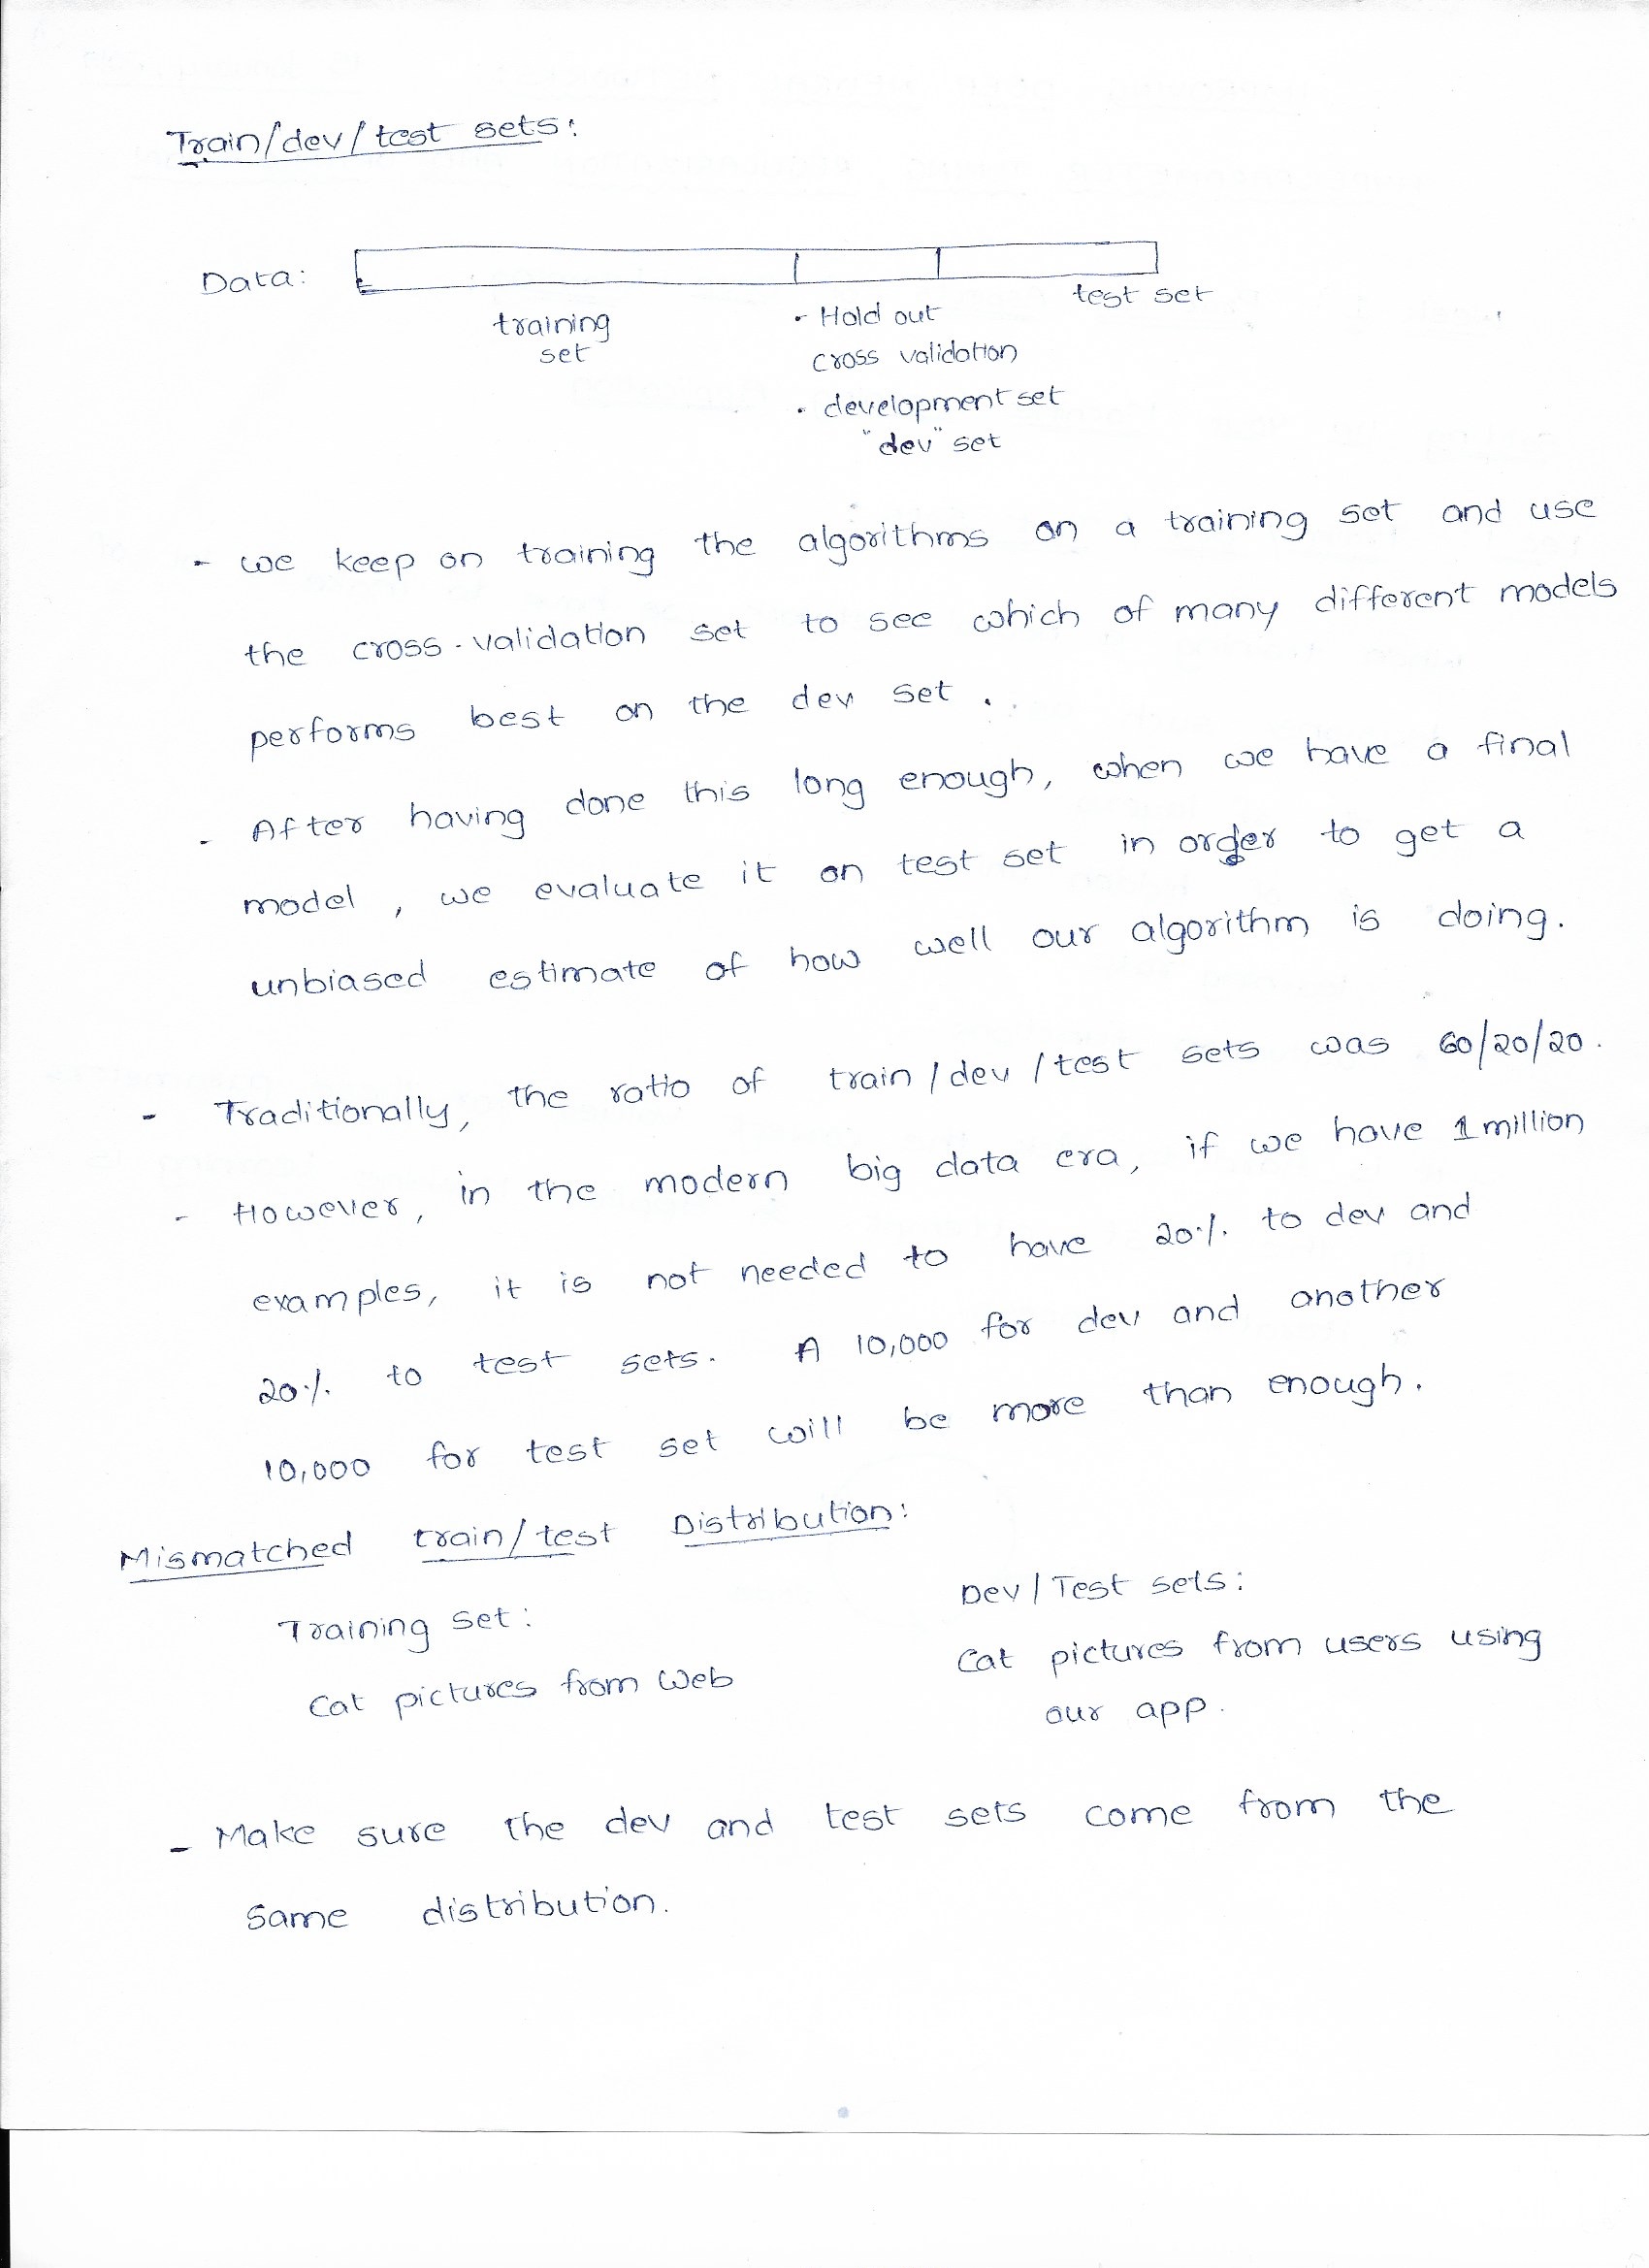 Train/dev/test sets:
Data:
training
set
- Hold out
cross validation
• development set
"dev" set
test set
- we keep on training the algorithms on a training set and use
the cross-validation set to see which of many different models
performs best on the dev set.
- After having done this long enough, when we have a final
model, we evaluate it on test set in order to get a
unbiased estimate of how well our algorithm is doing.
- Traditionally, the ratio of train/dev/test sets was 60/20/20.
- However, in the modern big data era, if we have 1 million
examples, it is not needed to have 20% to dev and
20% to test sets. A 10,000 for dev and another
10,000 for test set will be more than enough.
Mismatched train/test Distribution:
Training set:
Cat pictures from Web
Dev/Test sets:
Cat pictures from users using
our app.
- Make sure the dev and test sets come from the
same distribution.